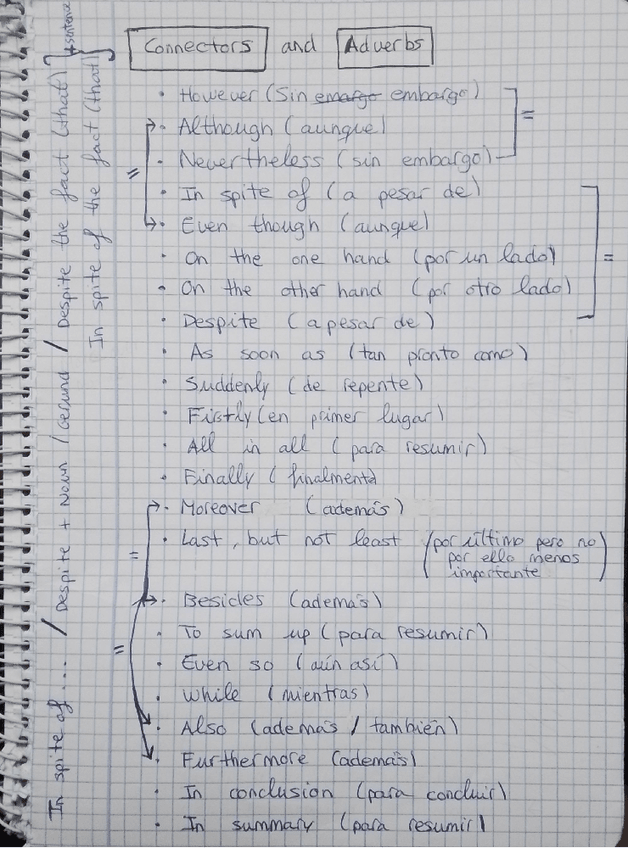 Connectors and Adverbs
However (Sin emargo embargo)
Although (aunque)
Nevertheless (sin embargo)
In spite of (a pesar de)
Even though (aunque)
On the one hand (por un lado)
On the other hand (por otro lado)
Despite (a pesar de)
As soon as (tan pronto como)
Suddenly (de repente)
Firstly (en primer lugar)
All in all (para resumir)
Finally (finalmente)
Moreover (además)
Last, but not least (por último pero no
por ello menos
importante)
Besides (además)
To sum up (para resumir)
Even so (aún así)
While (mientras)
Also (además / también)
Furthermore (además)
In conclusion (para concluir)
In summary (para resumir)
In spite of ... / Despite + Noun / Gerund / Despite the fact (that)
In spite of the fact (that)
+ sentence
=
=
=
=
=